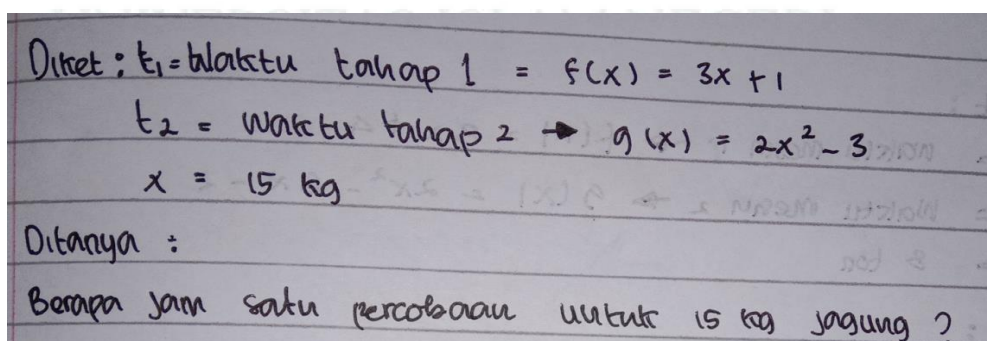 Diket : t₁ = Waktu tahap 1 = f(x) = 3x + 1
t2 = Waktu tahap 2 → g(x) = 2x² - 3
x = 15 kg
Ditanya :
Berapa jam satu percobaan untuk 15 kg jagung ?